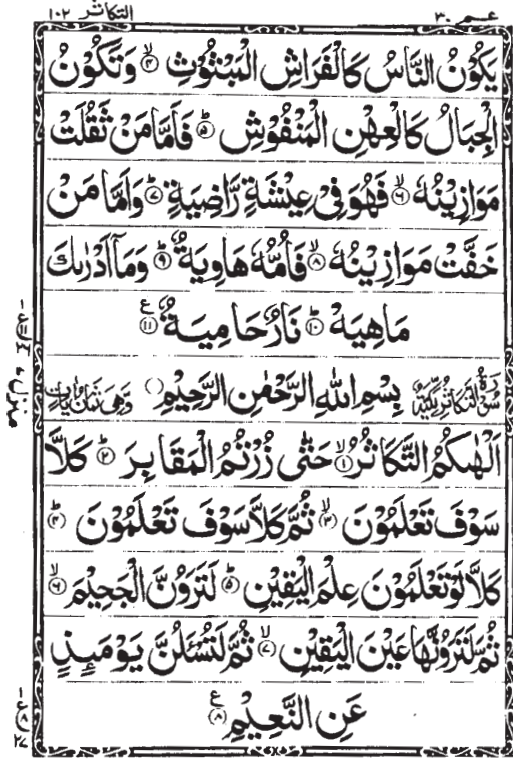 عـم ٣٠ التكاثر ١٠٢
يَكُوْنُ النَّاسُ كَالْفَرَاشِ الْمَبْثُوْثِ ۙ﴿۴﴾ وَتَكُوْنُ
الْجِبَالُ كَالْعِهْنِ الْمَنْفُوْشِ ؕ﴿۵﴾ فَاَمَّا مَنْ ثَقُلَتْ
مَوَازِيْنُهٗ ۙ﴿۶﴾ فَهُوَ فِيْ عِيْشَةٍ رَّاضِيَةٍ ؕ﴿۷﴾ وَاَمَّا مَنْ
خَفَّتْ مَوَازِيْنُهٗ ۙ﴿۸﴾ فَاُمُّهٗ هَاوِيَةٌ ؕ﴿۹﴾ وَمَاۤ اَدْرٰىكَ
مَاهِيَهْ ؕ﴿۱۰﴾ نَارٌ حَامِيَةٌ ﴿۱۱﴾ ع
سُوْرَةُ التَّكَاثُرِ مَكِّيَّةٌ بِسْمِ اللهِ الرَّحْمٰنِ الرَّحِيْمِ وَّهِيَ ثَمَانُ اٰيَاتٍ
اَلْهٰىكُمُ التَّكَاثُرُ ۙ﴿۱﴾ حَتّٰى زُرْتُمُ الْمَقَابِرَ ؕ﴿۲﴾ كَلَّا
سَوْفَ تَعْلَمُوْنَ ۙ﴿۳﴾ ثُمَّ كَلَّا سَوْفَ تَعْلَمُوْنَ ؕ﴿۴﴾
كَلَّا لَوْ تَعْلَمُوْنَ عِلْمَ الْيَقِيْنِ ؕ﴿۵﴾ لَتَرَوُنَّ الْجَحِيْمَ ۙ﴿۶﴾
ثُمَّ لَتَرَوُنَّهَا عَيْنَ الْيَقِيْنِ ۙ﴿۷﴾ ثُمَّ لَتُسْـَٔلُنَّ يَوْمَىِٕذٍ
عَنِ النَّعِيْمِ ﴿۸﴾ ع